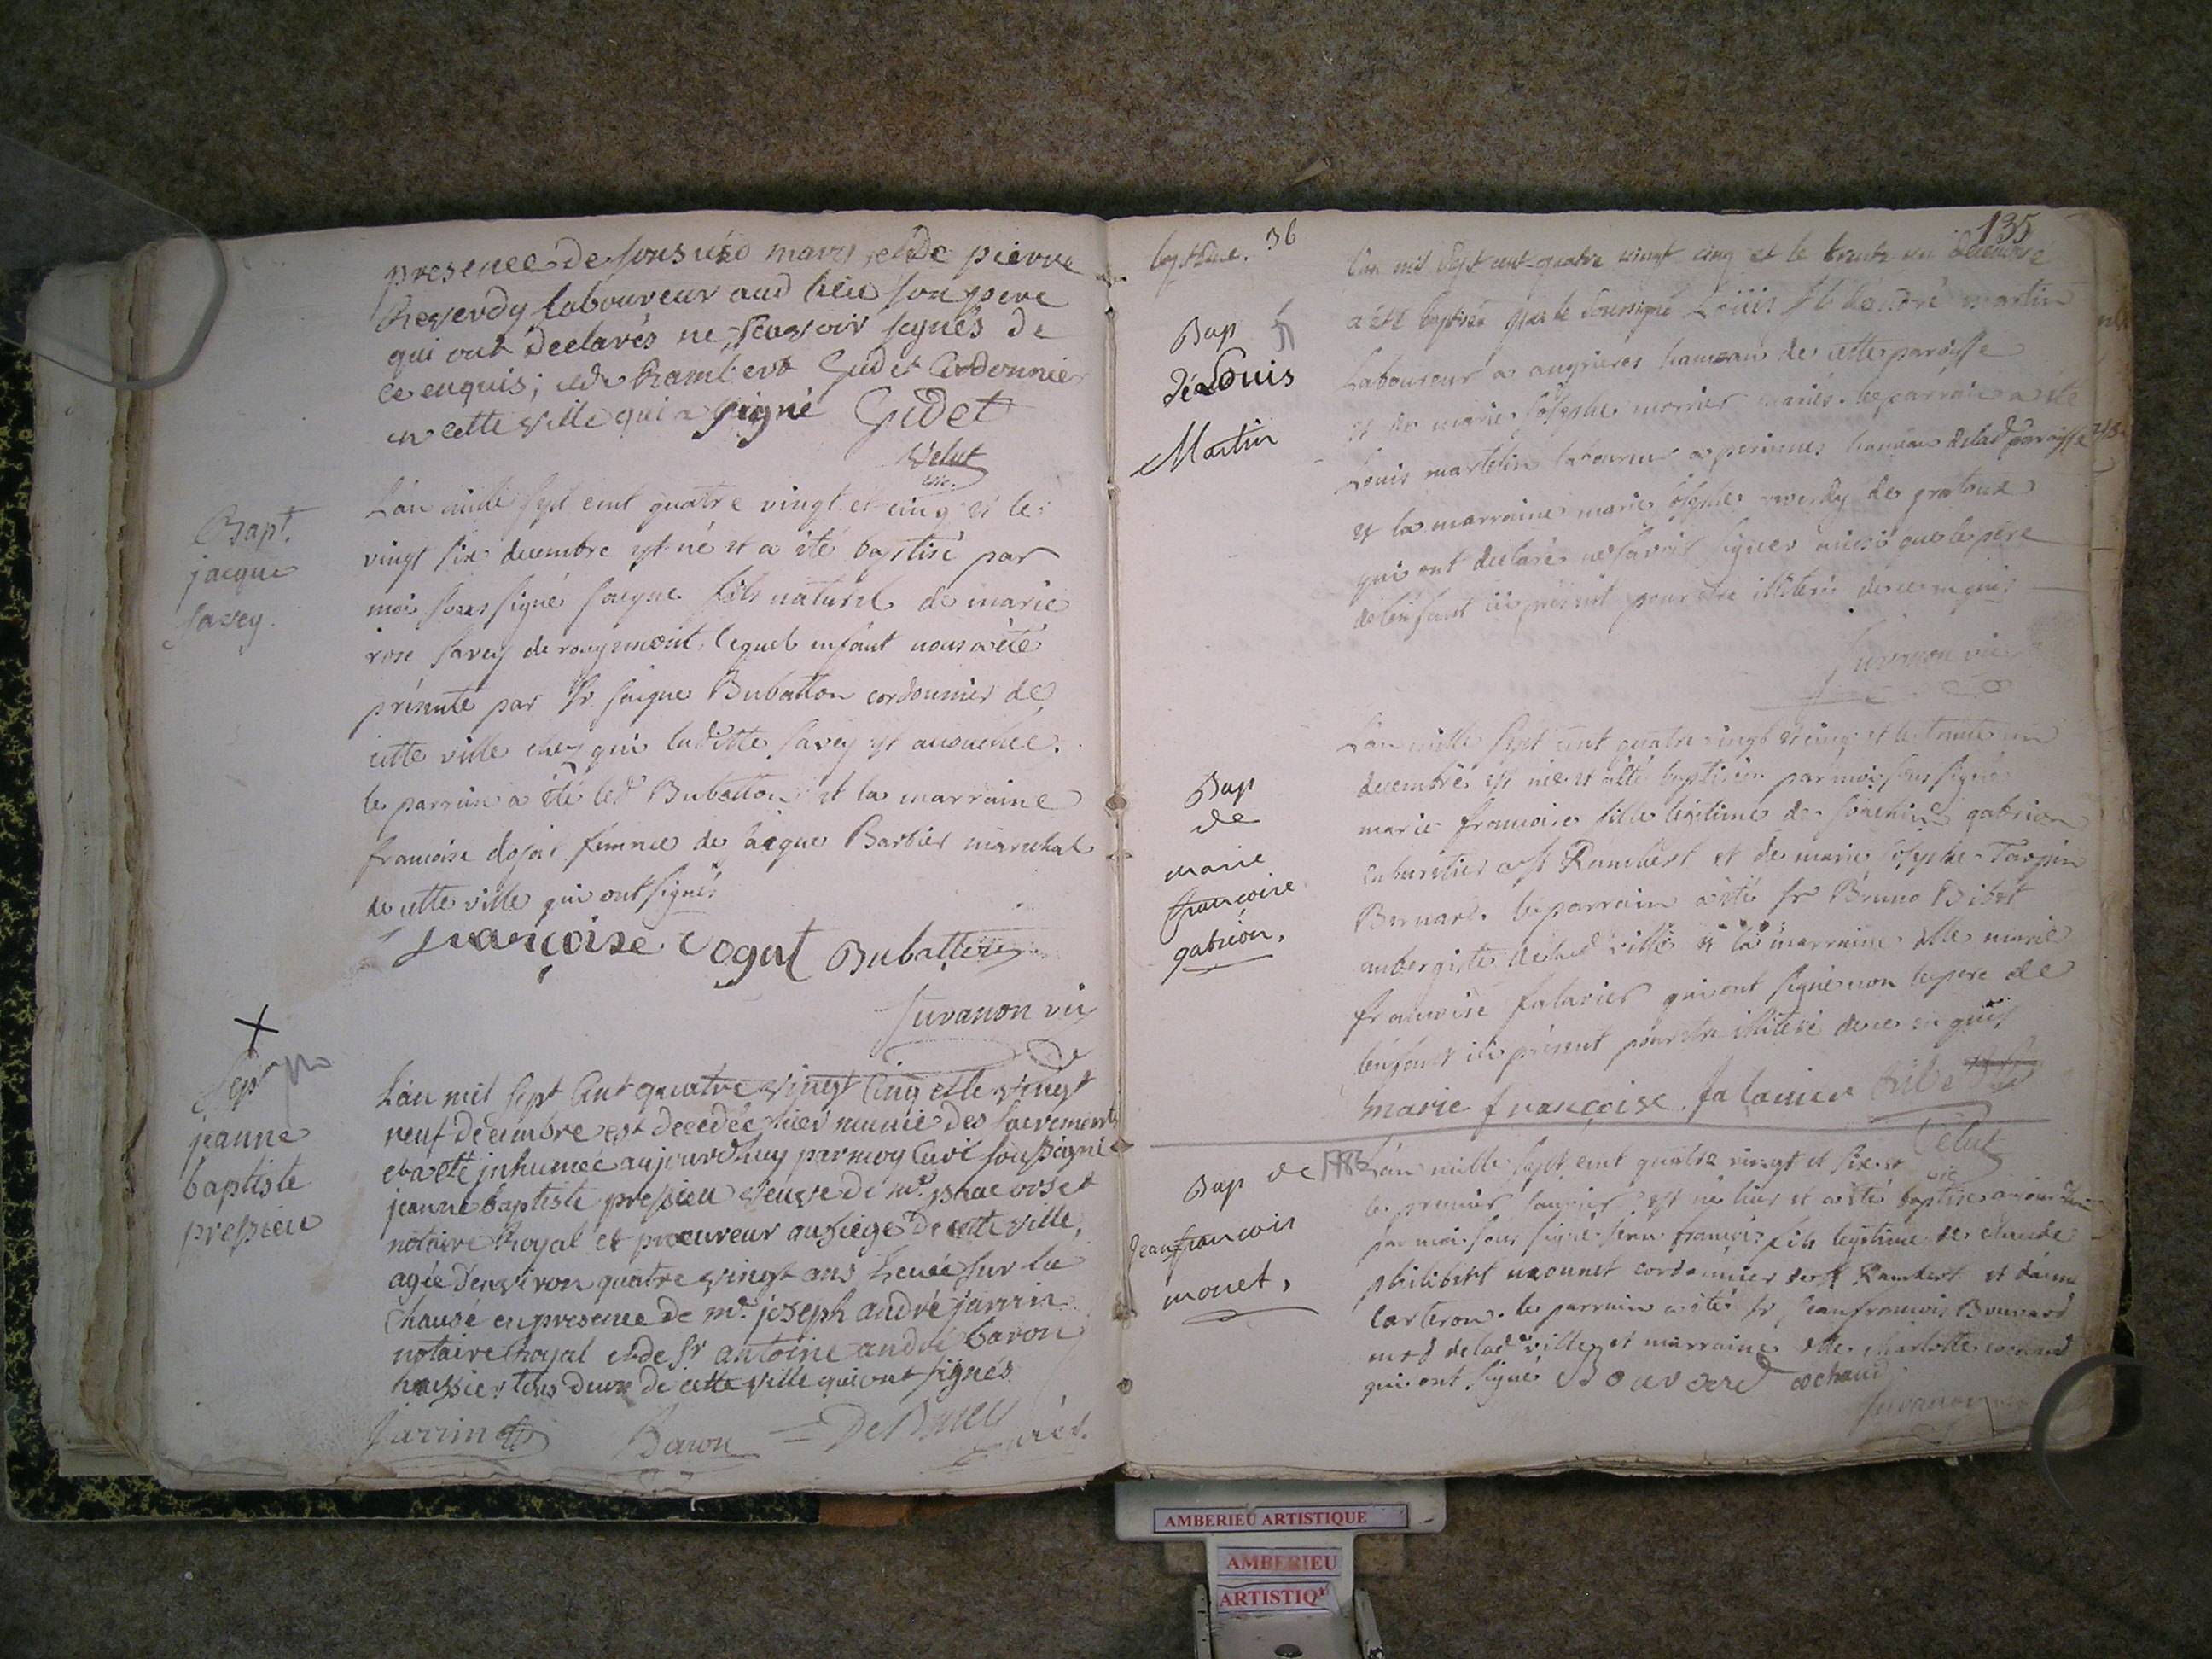 presence de susdit mary, et de pierre
Reverdy laboureur aud lieu son pere
qui ont declarés ne sçavoir signés de
ce enquis; et de Rambert Gudet Cordonnier
en cette ville qui a signé Gudet
Velut
vic.
Bapt.
jacque
savey.
L'an mille sept cent quatre vingt et cinq et le
vingt six decembre est né et a été baptisé par
moi sous signé jacque fils naturel de marie
rose savey de rougemont, lequel enfant nous a été
présenté par Sr. jacque Bubatton cordonnier de
cette ville chez qui laditte savey est accouchée.
le parrain a été led Bubatton et la marraine
francoise femme de jacque Barbier marechal
de cette ville qui ont signés
françoise Bubatton
Juvanon vic
Sepre
jeanne
baptiste
pressieu
L'an mil sept Cent quatre vingt Cinq et le vingt
neuf decembre est decedée hier munie des sacrements
et a eté inhumée aujourd'huy par moy Curé soussigné
jeanne baptiste pressieu veuve de me. orset
notaire Royal et procureur au siege de cette ville,
agée d'environ quatre vingt ans
en presence de me. joseph andré jarrin
notaire Royal et de Sr antoine andré baron
huissier tous deux de cette ville qui ont signés
Jarrin Baron curé.
135
36
Bap
de Louis
Martin
L'an mil sept cent quatre vingt cinq et le trente un decembre
a été baptisé par le soussigné Loüis fils d'andré martin
Laboureur a angrieres hameau de cette paroisse
et de marie josephe morrier mariés. le parrain a été
Louis martelin laboureur a hameau de lad paroisse
et la marraine marie josephe reverdy de
qui ont declaré ne savoir signer ainsi que le pere
de l'enfant ici présent pour être illiteré de ce enquis
Juvanon vic
Bap
de
marie
francoise
gabrion,
L'an mille sept cent quatre vingt et cinq et le trente un
decembre est née et a été baptisée par moi sous signé
marie francoise fille légitime de gabrion
cabaretier a St Rambert et de marie josephe Tarpin
Bernard. le parrain a été Sr Bruno Bibet
aubergiste de lad ville et la marraine dlle marie
francoise falavier qui ont signé non le pere de
l'enfant ici présent pour être illiteré de ce enquis
marie françoise falavier
Velut
vic
Bap de
jean francois
monet,
1786 L'an mille sept cent quatre vingt et six et
le premier janvier est né hier et a été baptisé aujourd'hui
par moi sous signé jean francois fils légitime de claude
philibert mounet cordonnier de St Rambert et d'anne
Carteron. le parrain a été Sr jean francois Bouvard
md de lad ville et marraine dlle charlotte cochaud
qui ont signé Bouvard cochaud
Juvanon
AMBERIEU ARTISTIQUE
AMBERIEU
ARTISTIQ